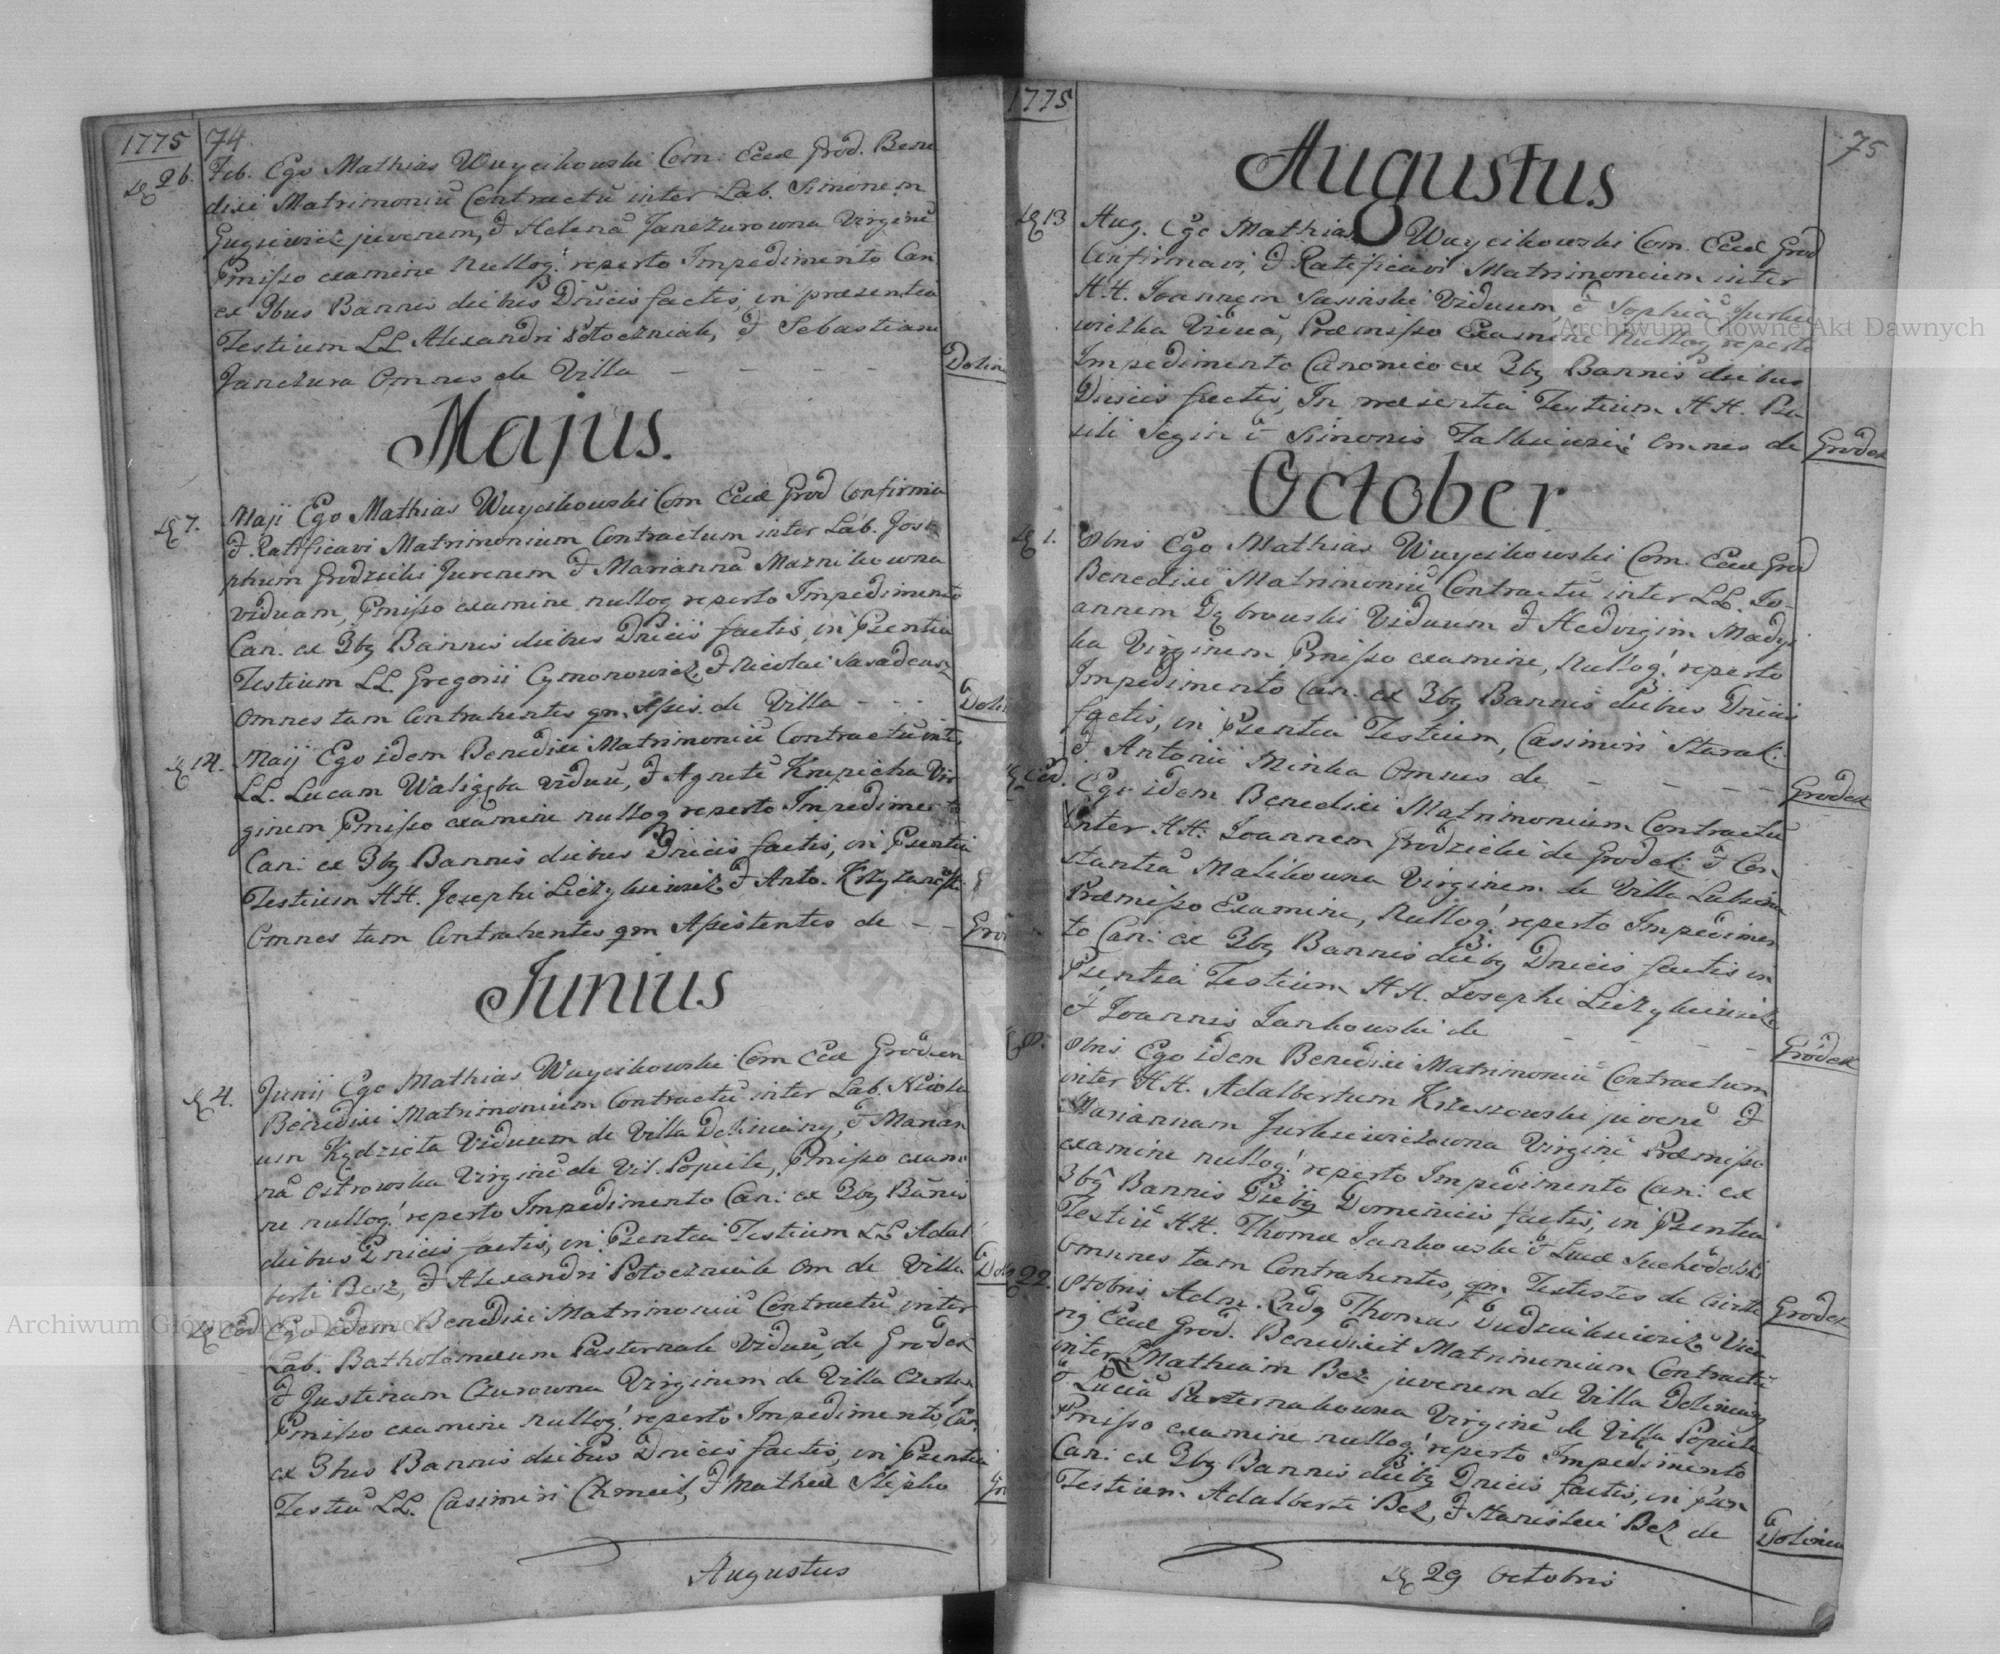 1775
74.
D. 26. Feb. Ego Mathias Wuycikowski Com: Eccl Grod. Bene
dixi Matrimoniũ Contractũ inter Lab. Simonem
juvenem, & Helenã Janczurowna Virginẽ
Pmisso examine nulloq! reperto Impedimento Can
ex 3bus Bannis diebus Dnicis factis, in præsentia
Testium LL Alexandri Potoczniak, & Sebastiani
Janczura Omnes de Villa – – – – Dolin
Majus.
D. 7. Maji Ego Mathias Wuycikowski Com Eccl Grod Confirma
& Ratificavi Matrimonium Contractum inter Lab. Jose
phum Grodzicki Juvenem & Mariannã Maznikowna
viduam, Pmisso examine nulloq reperto Impedimento
Can. ex 3bq Bannis diebus Dnicis factis, in Psentia
Testium LL. Gregorii Cymonowicz, & Nicolai
Omnes tam Contrahentes qm. Assis. de Villa – – – Doli
D. 14. Maij Ego idem Benedixi Matrimoniũ Contractũ inte
LL. Lucam Waligęba viduũ, & Agnetẽ Krupicka Vir
ginem Pmisso examine nulloq reperto Impedimento
Can: ex 3bq Bannis diebus Dnicis factis, in Psentia
Testium HH. Josephi Liczykiewicz & Anto.
Omnes tam Contrahentes qm Assistentes de – – Gro
Junius
D. 4. Junij Ego Mathias Wuycikowski Com Eccl Groden
Benedixi Matrimonium Contractũ inter Lab. Nicola
um Kędziota Viduum de Villa Doliniany, & Marian
nã Ostrowska Virginẽ de Vil. Popiele, Pmisso exami
ne nulloq! reperto Impedimento Can: ex 3bq Bãnis
diebus Dnicis factis, in Psentia Testium LL Adal
berti Besz, & Alexandri Potoczniak Om de Villa Dol
D. Ead Ego idem Benedixi Matrimoniũ Contractũ inter
Lab. Batholomæum Pasternak Viduũ, de Grodek
& Justinam Czurowna Virginem de Villa
Pmisso examine nulloq! reperto Impedimento Can.
ex 3bus Bannis diebus Dnicis factis, in Psentia
Testiũ LL. Casimiri Chmiel, & Mathei Stepko Gr
Augustus
1775
75
Augustus
D. 13 Aug. Ego Mathias Wuycikowski Com. Eccl Grod
Confirmavi, & Ratificavi Matrimonium inter
HH. Joannem Sasinski Viduum, & Sophiã Jurkie
wiczka Viduã, Præmisso Examine Nulloq reperto
Impedimento Canonico ex 3bq Bannis diebus
Dnicis factis, In præsentia Testium HH.
Segin & Simonis Falkiewicz Omnes de Grodek
October
D. 1. 8bris Ego Mathias Wuycikowski Com. Eccl Grod
Benedixi Matrimoniũ Contractũ inter LL. Jo-
annem Dąbrowski Viduum & Hedvigim Mady
ka Virginem Pmisso examine, Nulloq! reperto
Impedimento Can: ex 3bq Bannis diebus Dnicis
factis, in Psentia Testium, Casimiri Starak:
& Antonii Minka Omnes de – – – – Grodek
D. Ead. Ego idem Benedixi Matrimonium Contractũ
inter HH. Joannem Grodzicki de Grodek & Con
stantiã Malikowna Virginem de Villa
Præmisso Examine, Nulloq! reperto Impedimen
to Can: ex 3bq Bannis diebq Dnicis factis in
Psentia Testium HH. Josephi Liczykiewicz
& Joannis Jankowski de – – – – Grodek
D. 8. 8bris Ego idem Benedixi Matrimoniũ Contractum
inter HH. Adalbertum Krzeszowski juvenẽ &
Mariannam Jurkiewiczowna Virginẽ Præmisso
examine nulloq! reperto Impedimento Can: ex
3bq Bannis Diebq Domenicis factis, in Psentia
Testiũ HH. Thomæ Jankowski & Lucæ Suchodolski
Omnes tam Contrahentes, qm. Testes de Civitte Grodek
22. 8tobris Adm. Rndq Thomas Dudzinkiewicz Vica
riq Eccl Grod. Benedixit Matrimonium Contractũ
inter L Mathiam Bez juvenem de Villa Doliniany
& Luciã Pasternakowna Virginẽ de Villa Popiele
Pmisso examine nulloq! reperto Impedimento
Can: ex 3bq Bannis diebq Dnicis factis, in Psen
Testium Adalberti Bez, & Stanislai Bez de Dolinia
D. 29 Octobris
Archiwum Główne Akt Dawnych
Archiwum Główne Akt Dawnych